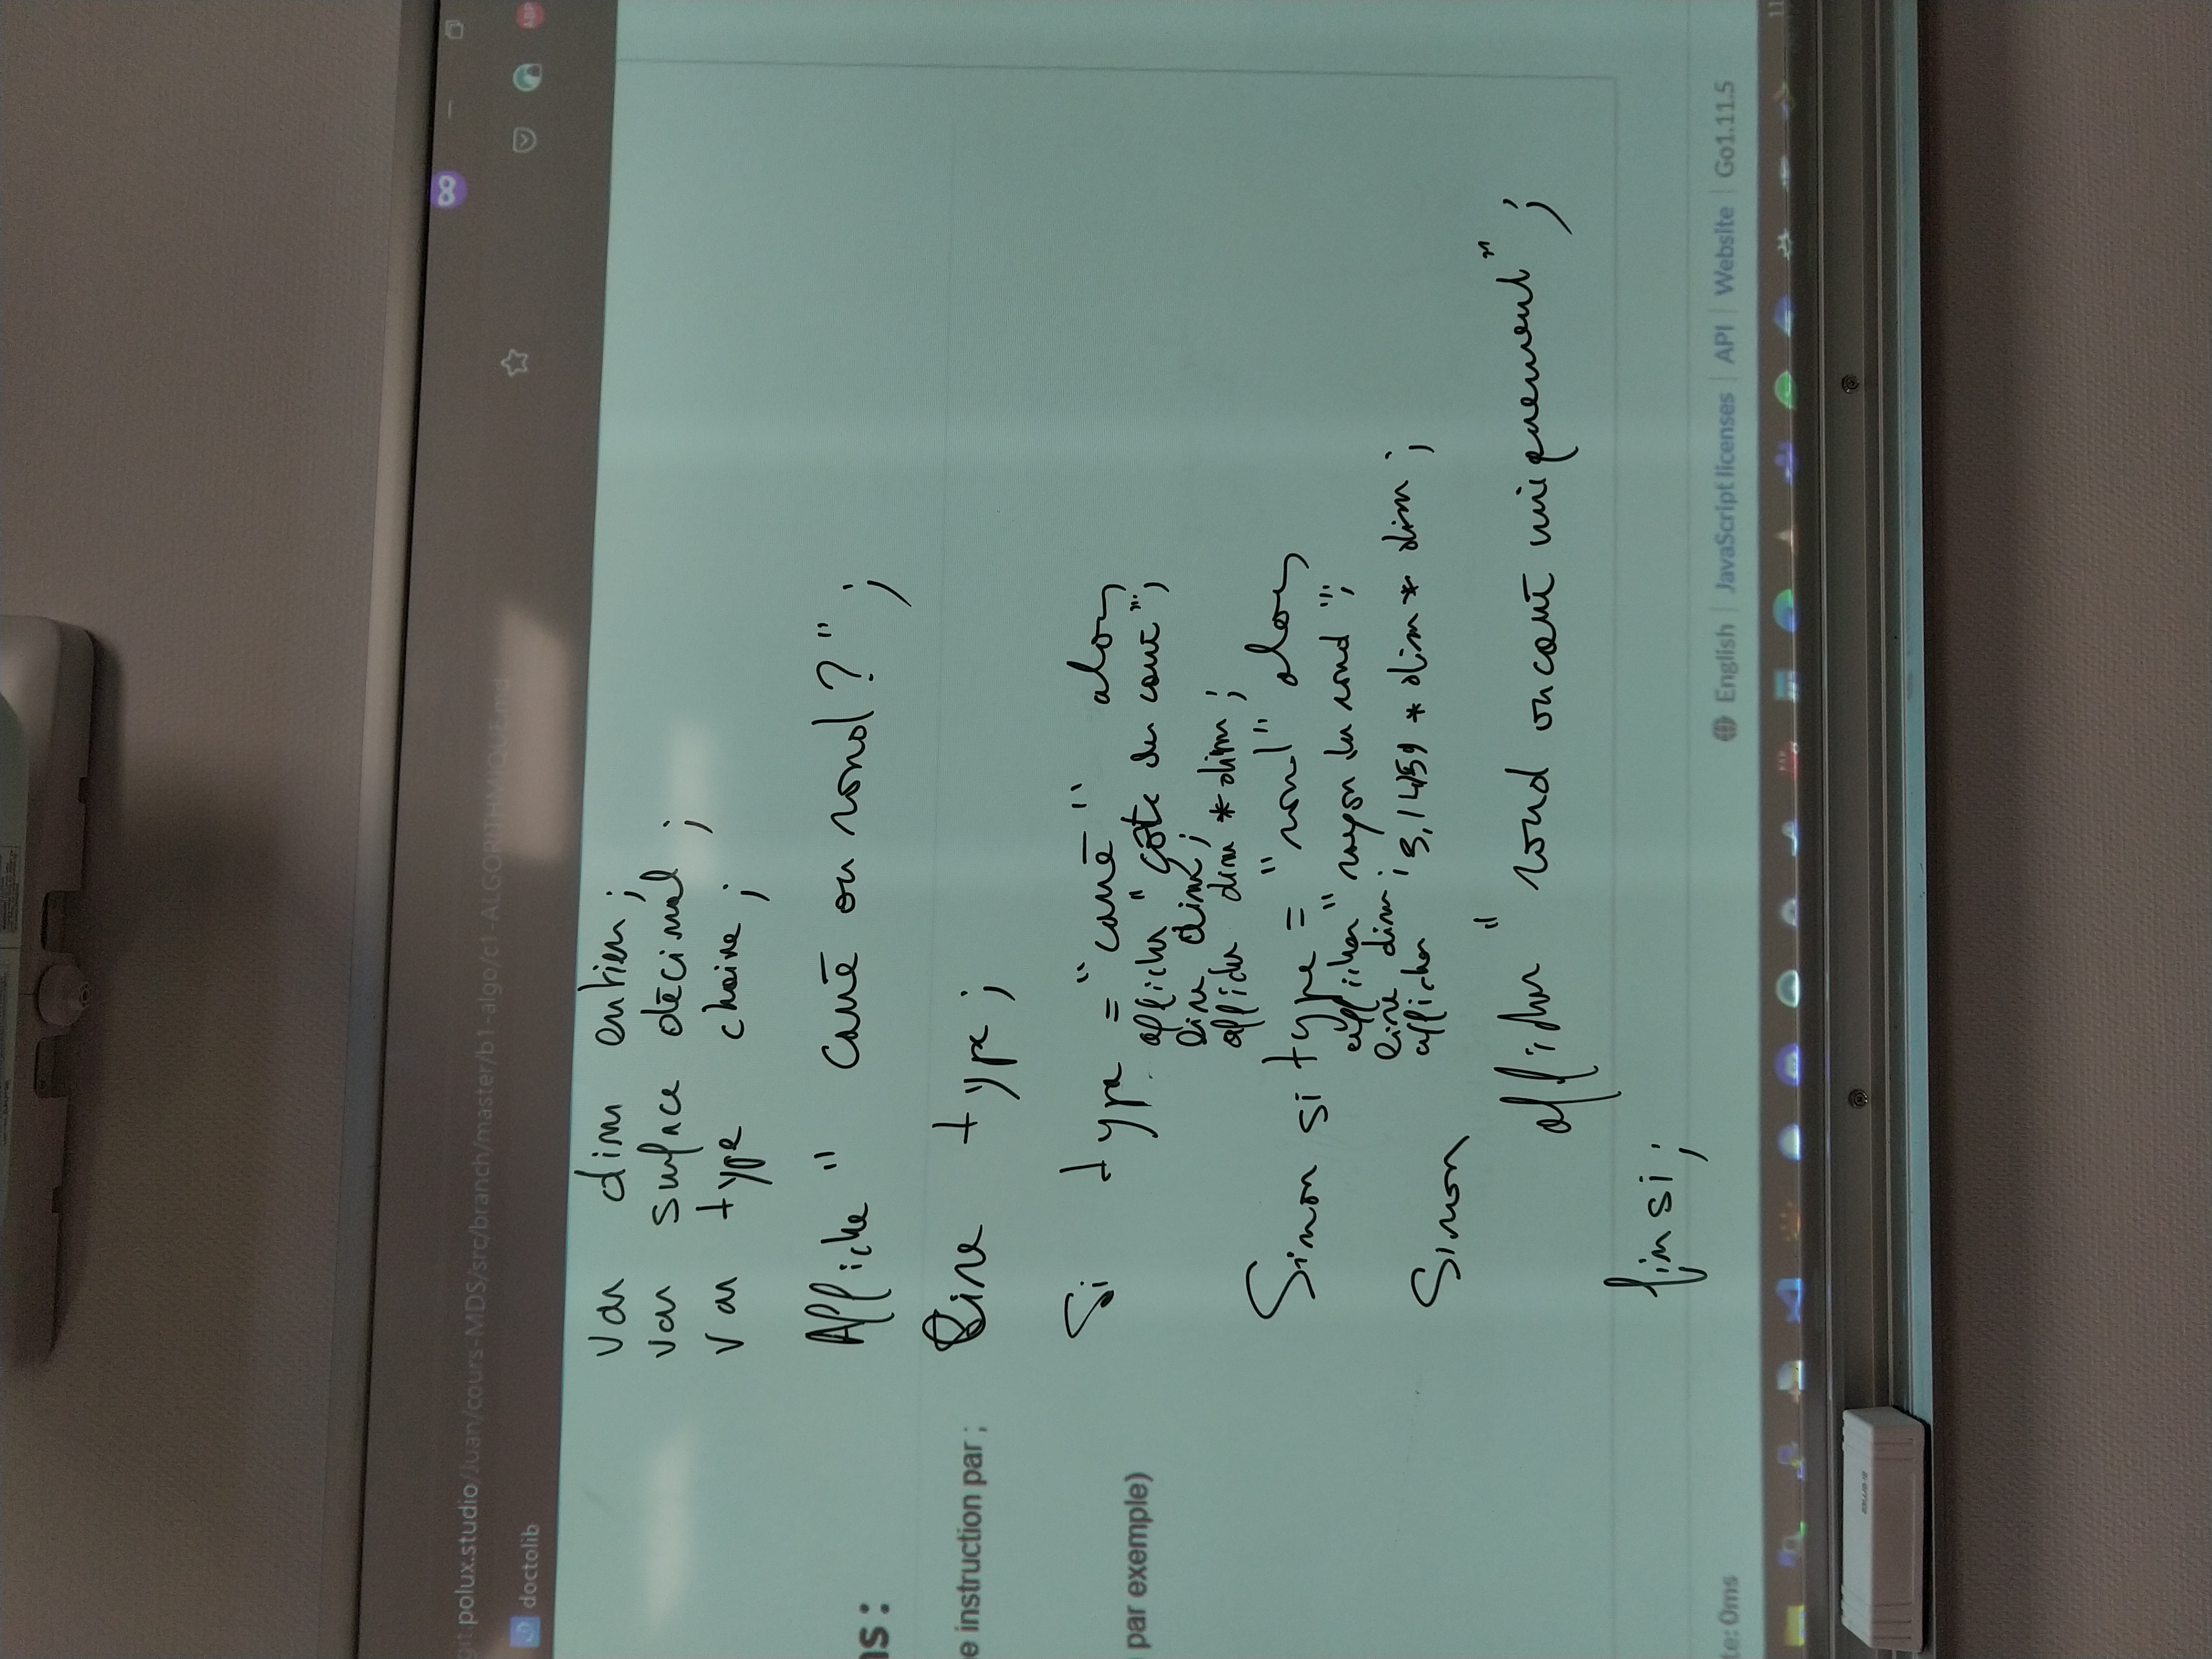 git.polux.studio/Juan/cours-MDS/src/branch/master/b1-algo/c1-ALGORITHMIQUE.md
doctolib
ABP
var dim entier;
var surface décimal;
var type chaine;
Affiche "carré ou rond ?";
ns :
Lire type;
e instruction par ;
Si type = "carré" alors
par exemple)
afficher "côté du carré";
Lire dim;
afficher dim * dim;
Sinon si type = "rond" alors
afficher "rayon du rond";
Lire dim;
afficher 3,14159 * dim * dim;
Sinon
afficher "rond ou carré uniquement";
finsi;
te: 0ms
English | JavaScript licenses | API | Website | Go1.11.5
11